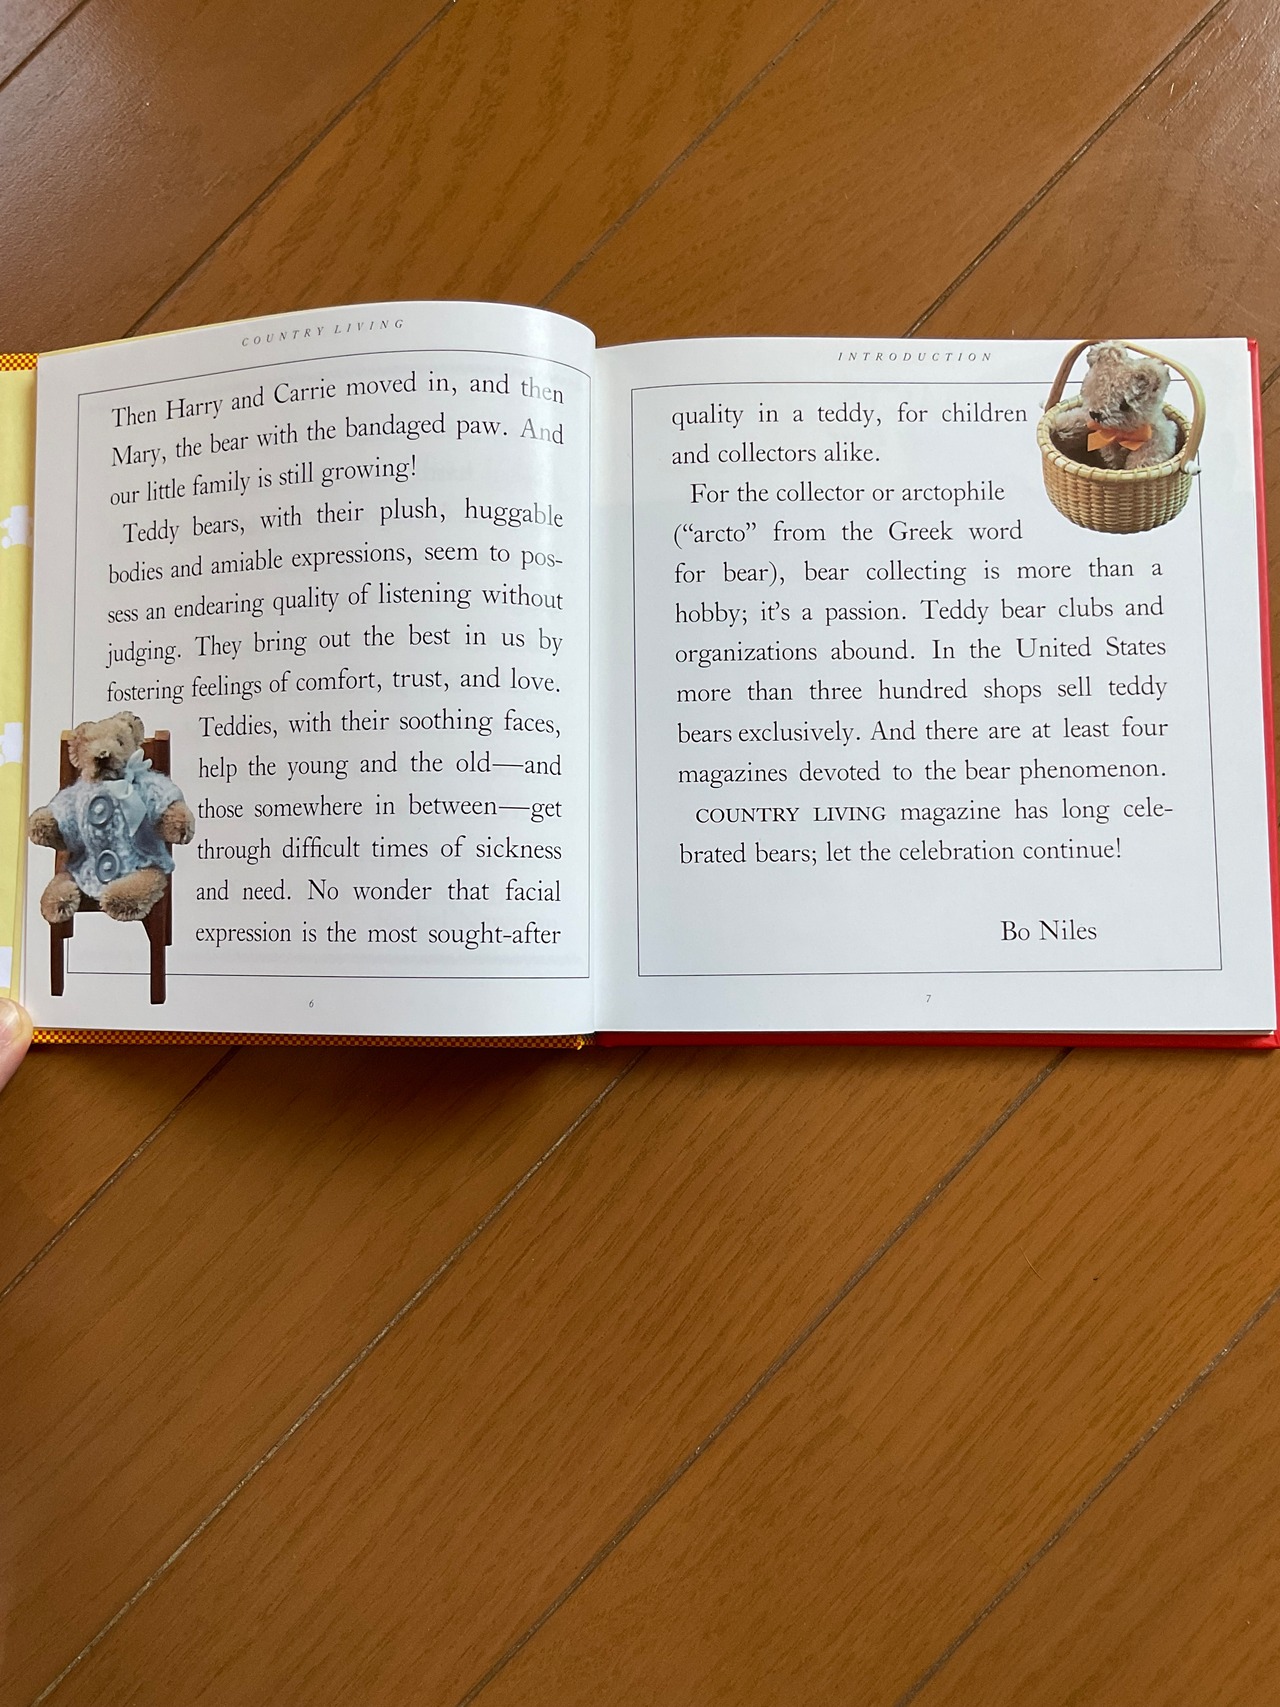 COUNTRY LIVING
Then Harry and Carrie moved in, and then
Mary, the bear with the bandaged paw. And
our little family is still growing!
Teddy bears, with their plush, huggable
bodies and amiable expressions, seem to pos-
sess an endearing quality of listening without
judging. They bring out the best in us by
fostering feelings of comfort, trust, and love.
Teddies, with their soothing faces,
help the young and the old—and
those somewhere in between—get
through difficult times of sickness
and need. No wonder that facial
expression is the most sought-after
6
INTRODUCTION
quality in a teddy, for children
and collectors alike.
For the collector or arctophile
(“arcto” from the Greek word
for bear), bear collecting is more than a
hobby; it’s a passion. Teddy bear clubs and
organizations abound. In the United States
more than three hundred shops sell teddy
bears exclusively. And there are at least four
magazines devoted to the bear phenomenon.
COUNTRY LIVING magazine has long cele-
brated bears; let the celebration continue!
Bo Niles
7